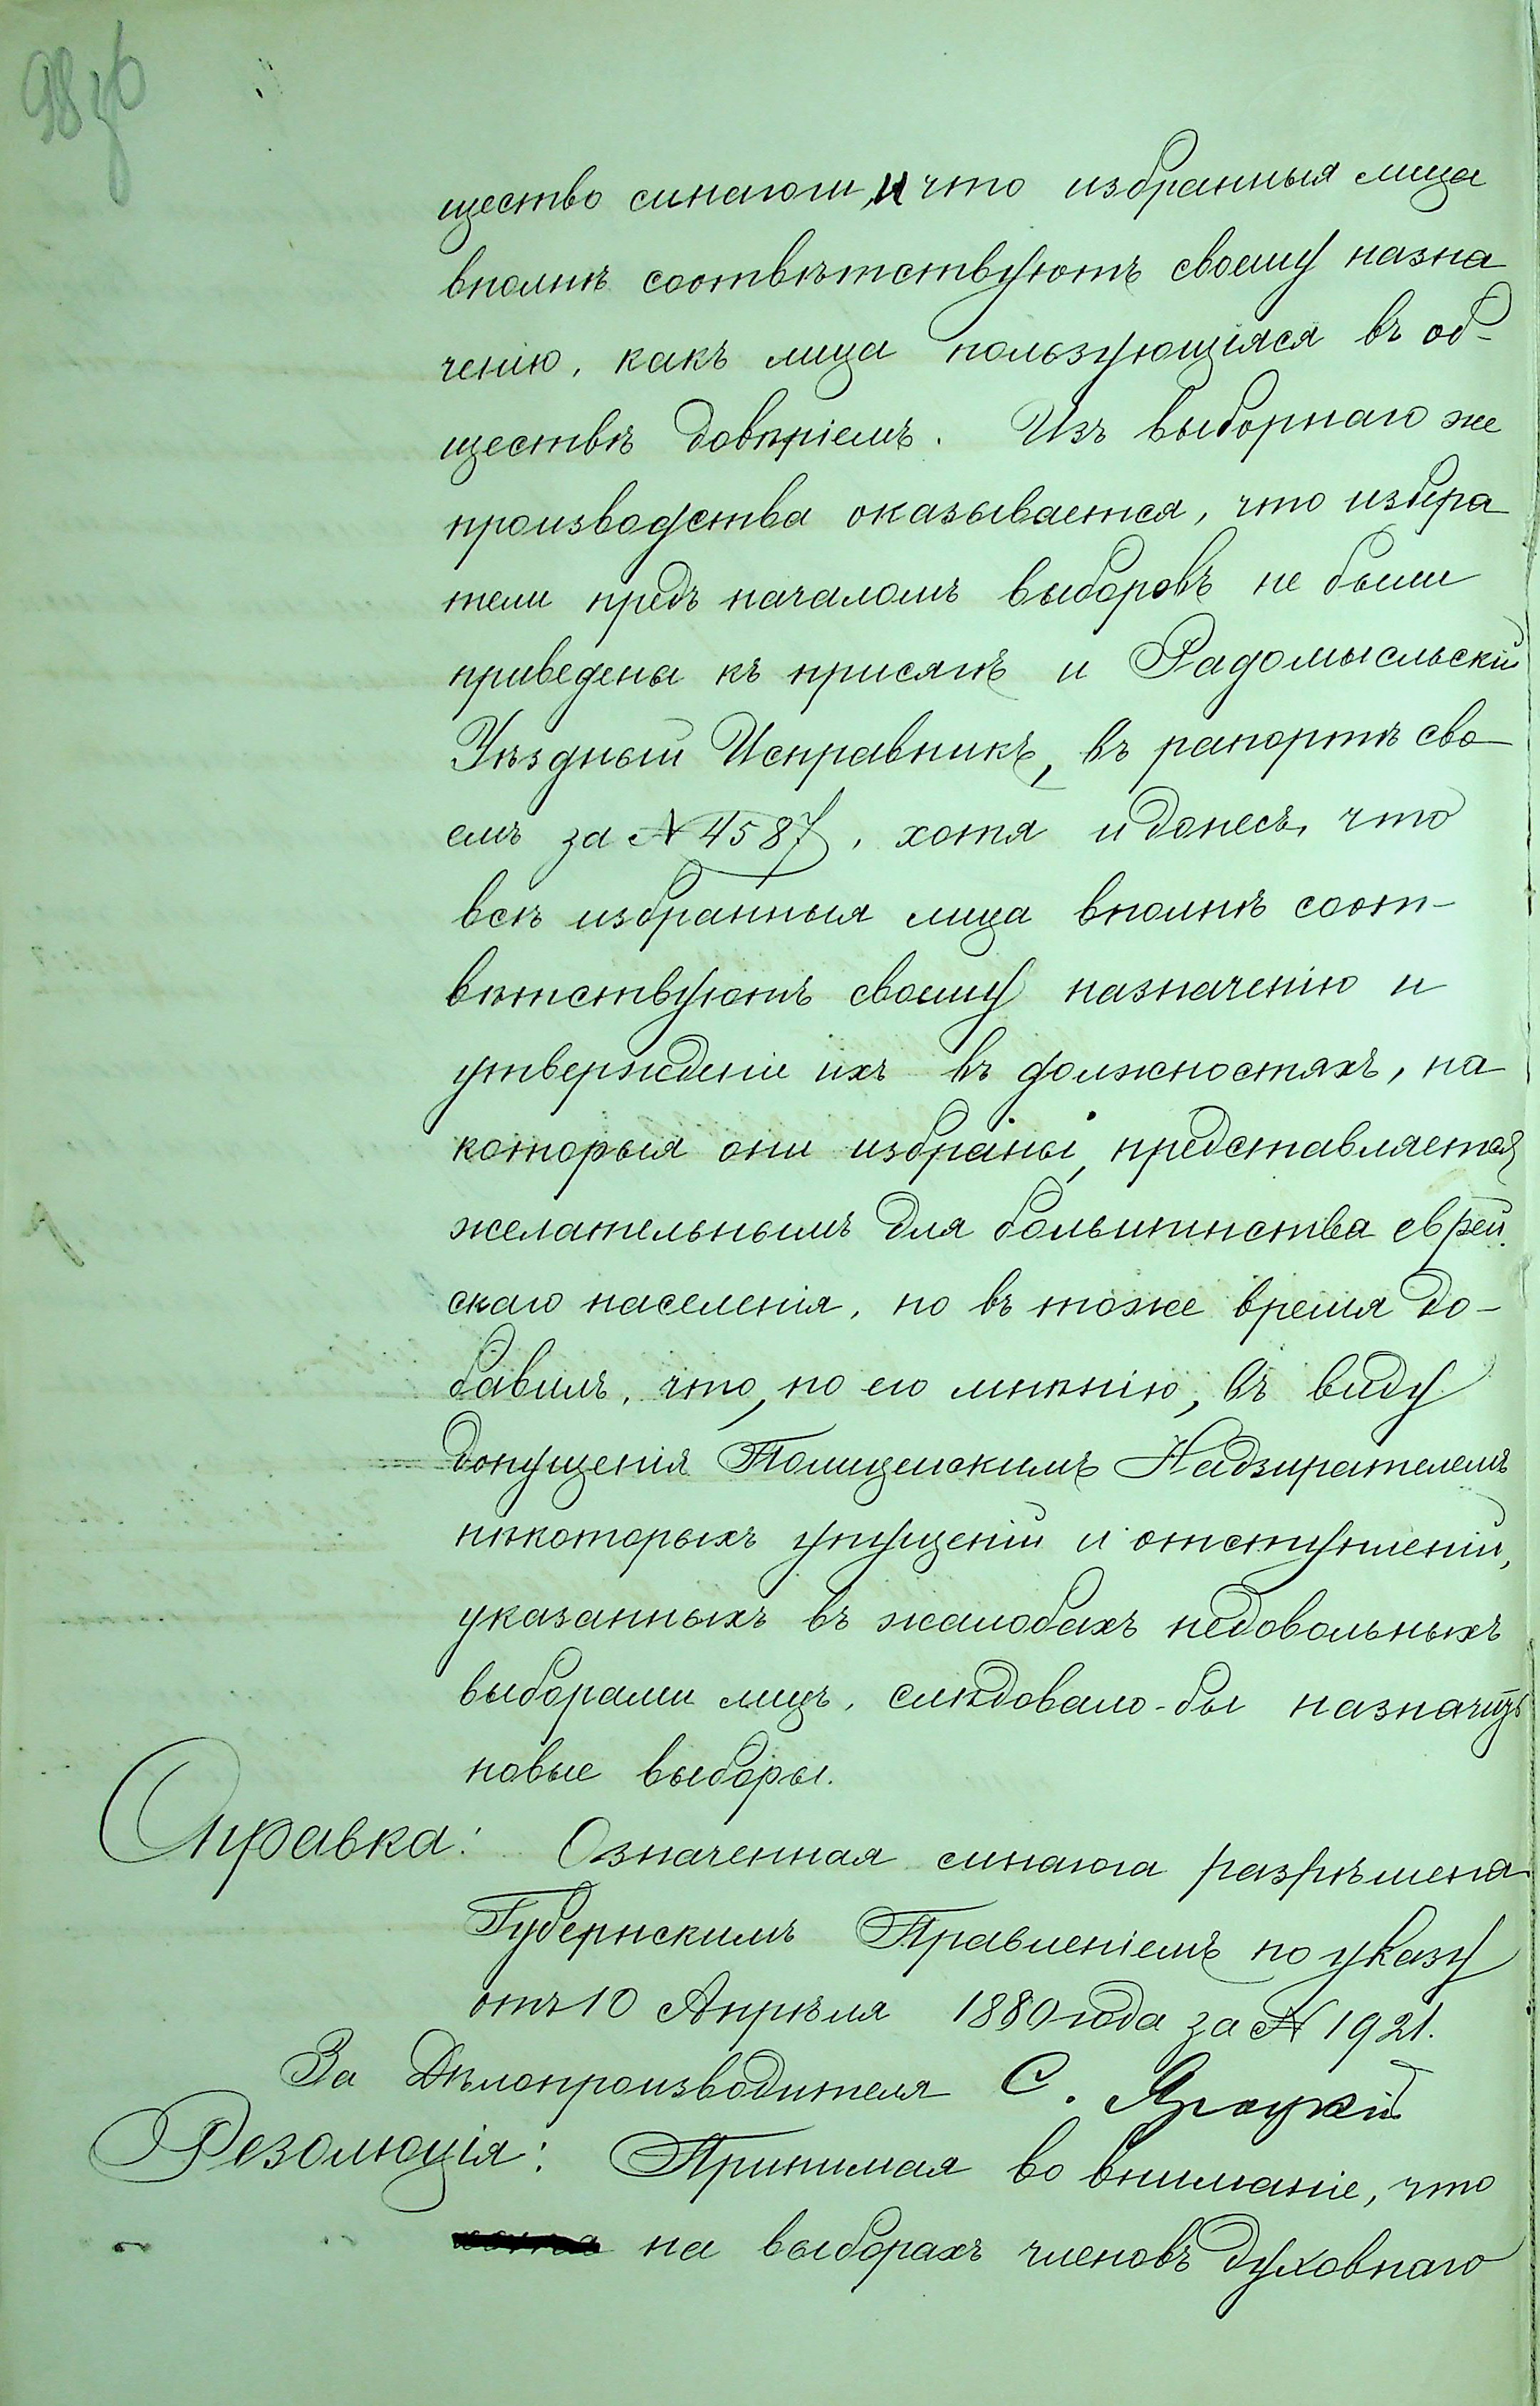 98 об
щество синагоги, и что избранныя лица
вполнѣ соотвѣтствуютъ своему назна
ченію, какъ лица пользующіяся въ об-
ществѣ довѣріемъ. Изъ выборнаго же
производства оказывается, что избира
тели предъ началомъ выборовъ не были
приведены къ присягѣ и Радомысльскій
Уѣздный Исправникъ, въ рапортѣ сво
емъ за № 4587, хотя и донесъ, что
всѣ избранныя лица вполнѣ соот-
вѣтствуютъ своему назначенію и
утвержденіе ихъ въ должностяхъ, на
которыя они избраны, представляется
желательнымъ для большинства еврей
скаго населенія, но въ тоже время до-
бавилъ, что, по его мнѣнію, въ виду
допущенія Полицейскимъ Надзирателемъ
нѣкоторыхъ упущеній и отступленій,
указанныхъ въ жалобахъ недовольныхъ
выборами лицъ, слѣдовало-бы назначить
новые выборы.
Справка: Означенная синагога разрѣшена
Губернскимъ Правленіемъ по указу
отъ 10 Апрѣля 1880 года за № 1921.
За Дѣлопроизводителя С.
Резолюція: Принимая во вниманіе, что
на выборахъ членовъ духовнаго